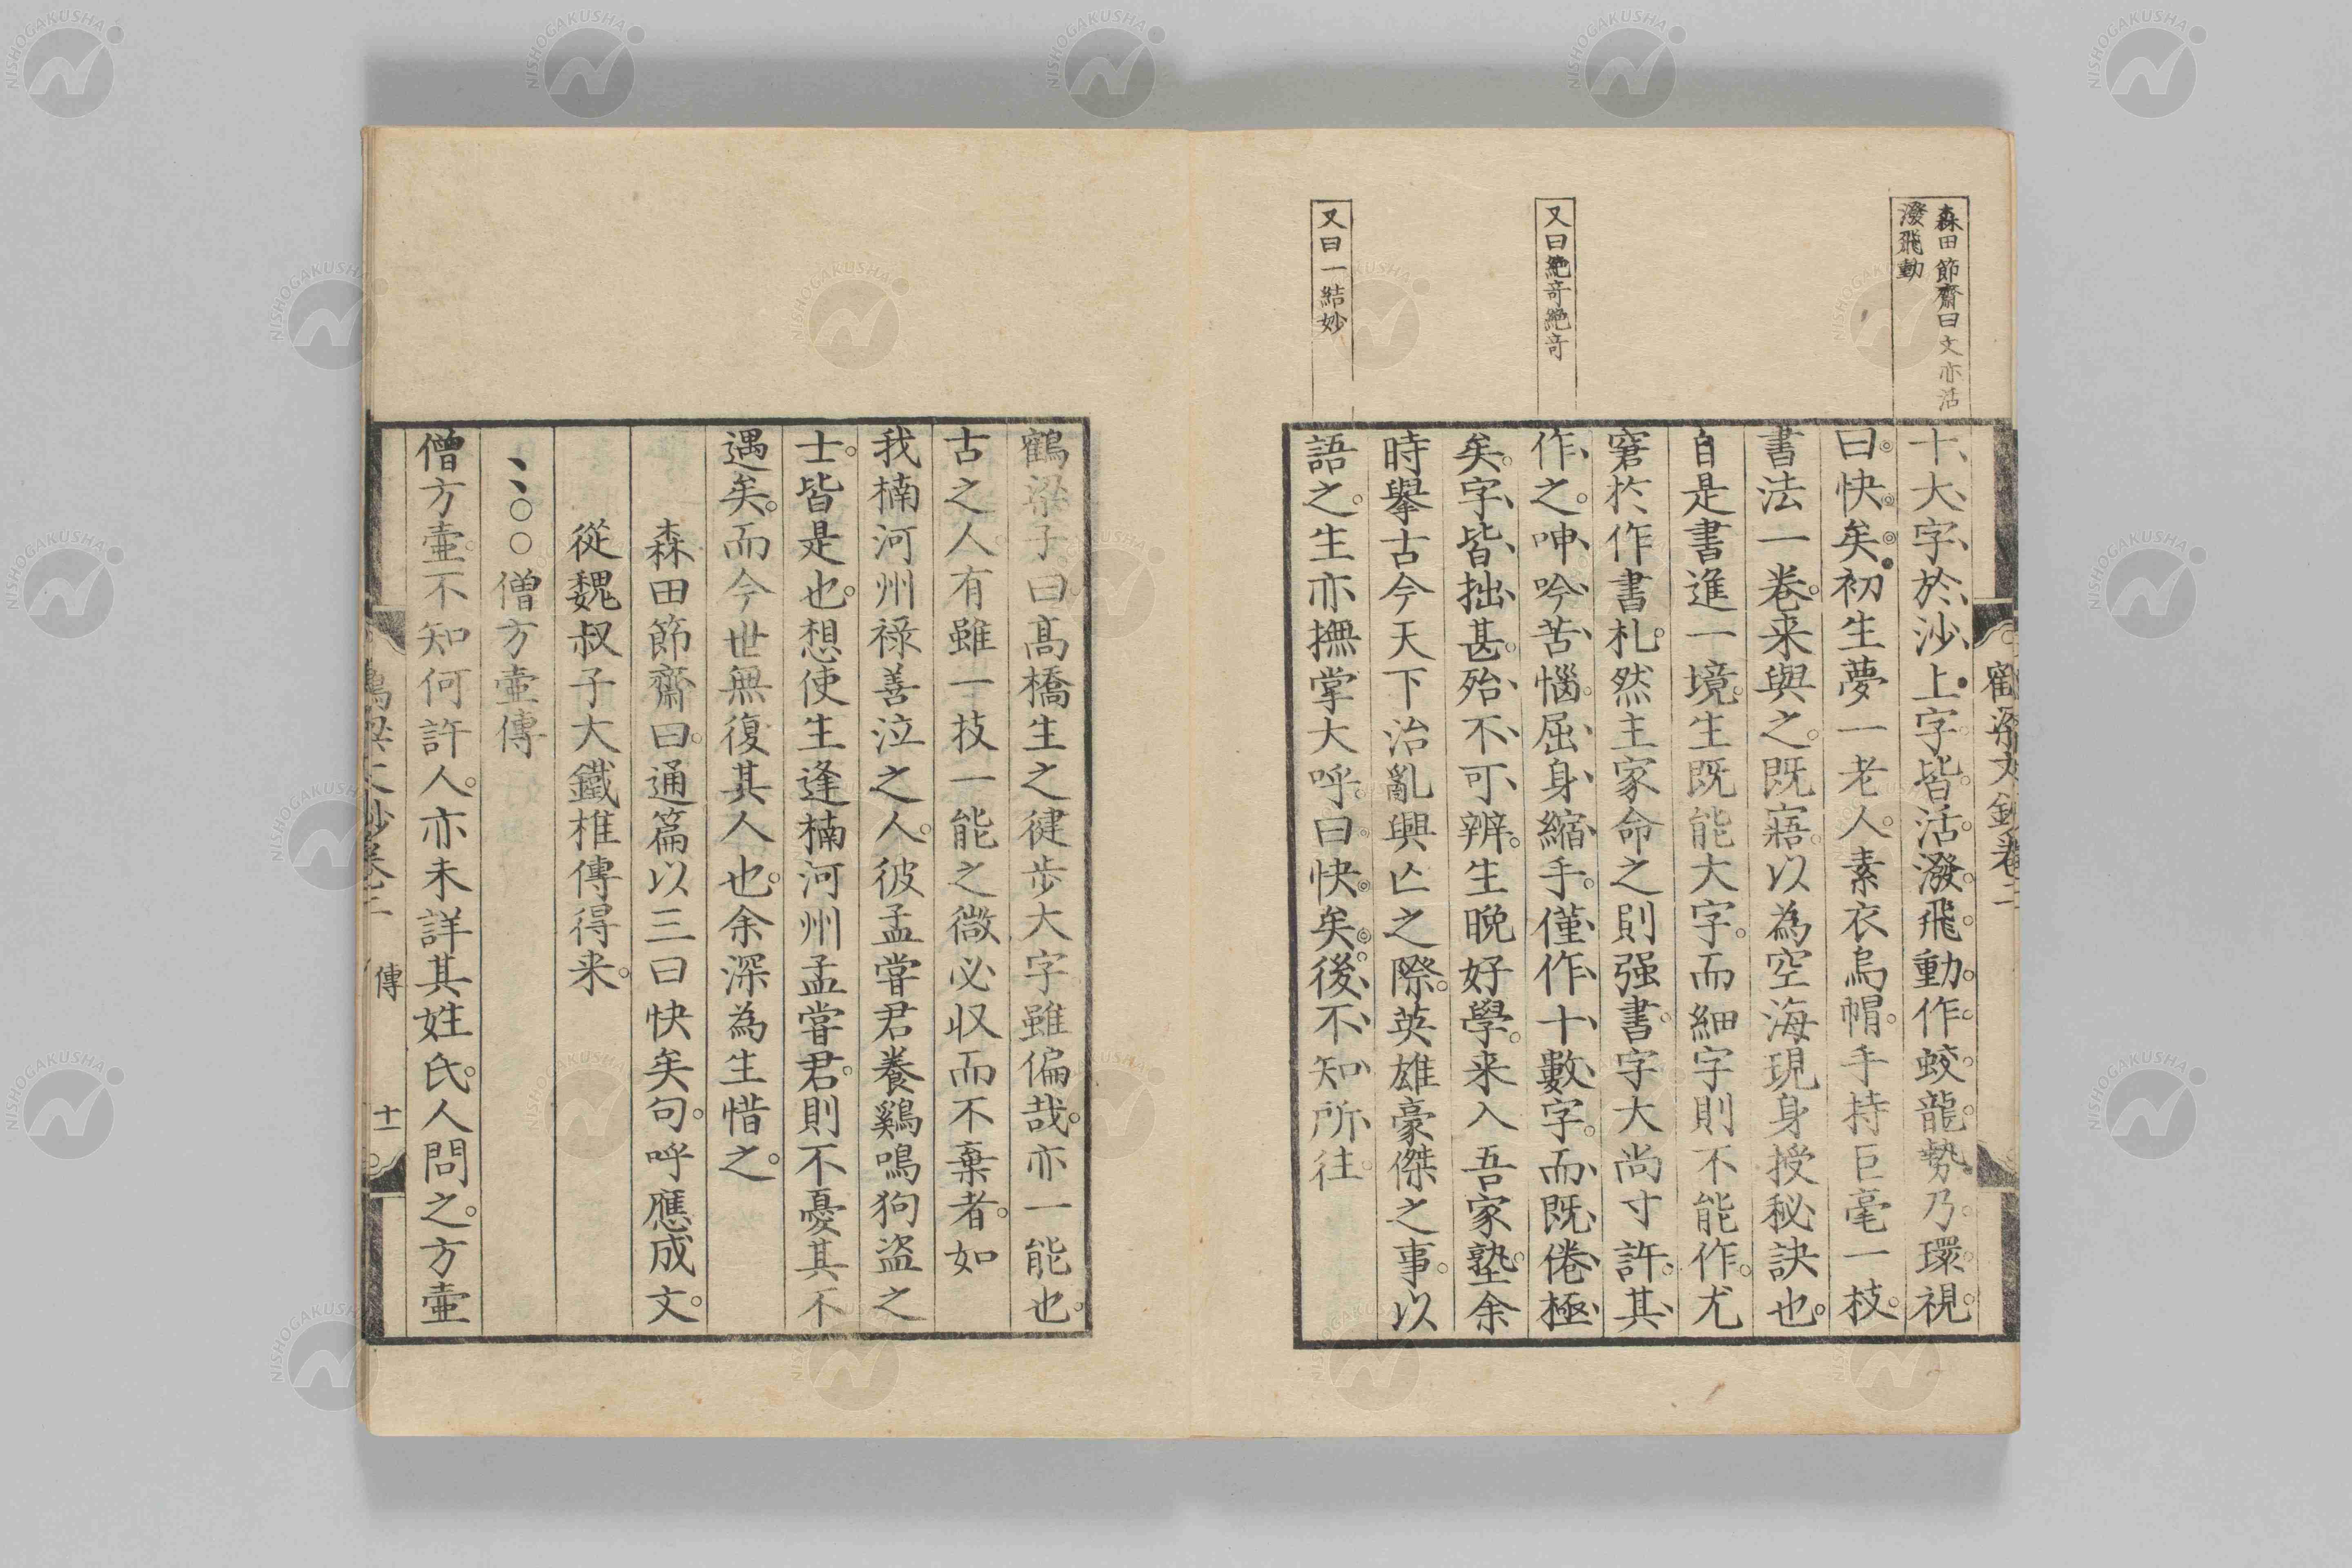 森田節齋曰文亦活
潑飛動
又曰絶奇絶奇
又曰一結妙
十大字於沙上字皆活潑飛動作蛟龍勢乃環視
曰快矣初生夢一老人素衣烏帽手持巨毫一枝
書法一卷来與之既寤以為空海現身授秘訣也
自是書進一境生既能大字而細字則不能作尤
窘於作書札然主家命之則强書字大尚寸許其
作之呻吟苦惱屈身縮手僅作十數字而既倦極
矣字皆拙甚殆不可辨生晩好學来入吾家塾余
時擧古今天下治亂興亾之際英雄豪傑之事以
語之生亦撫掌大呼曰快矣後不知所往
鶴梁子曰髙橋生之健步大字雖偏哉亦一能也
古之人有雖一技一能之微必収而不棄者如
我楠河州祿善泣之人彼孟嘗君養鷄鳴狗盗之
士皆是也想使生逢楠河州孟嘗君則不憂其不
遇矣而今世無復其人也余深為生惜之
森田節齋曰通篇以三曰快矣句呼應成文
從魏叔子大鐵椎傳得来
丶丶○○僧方壷傳
僧方壷不知何許人亦未詳其姓氏人問之方壷
傳
十一
NISHOGAKUSHA